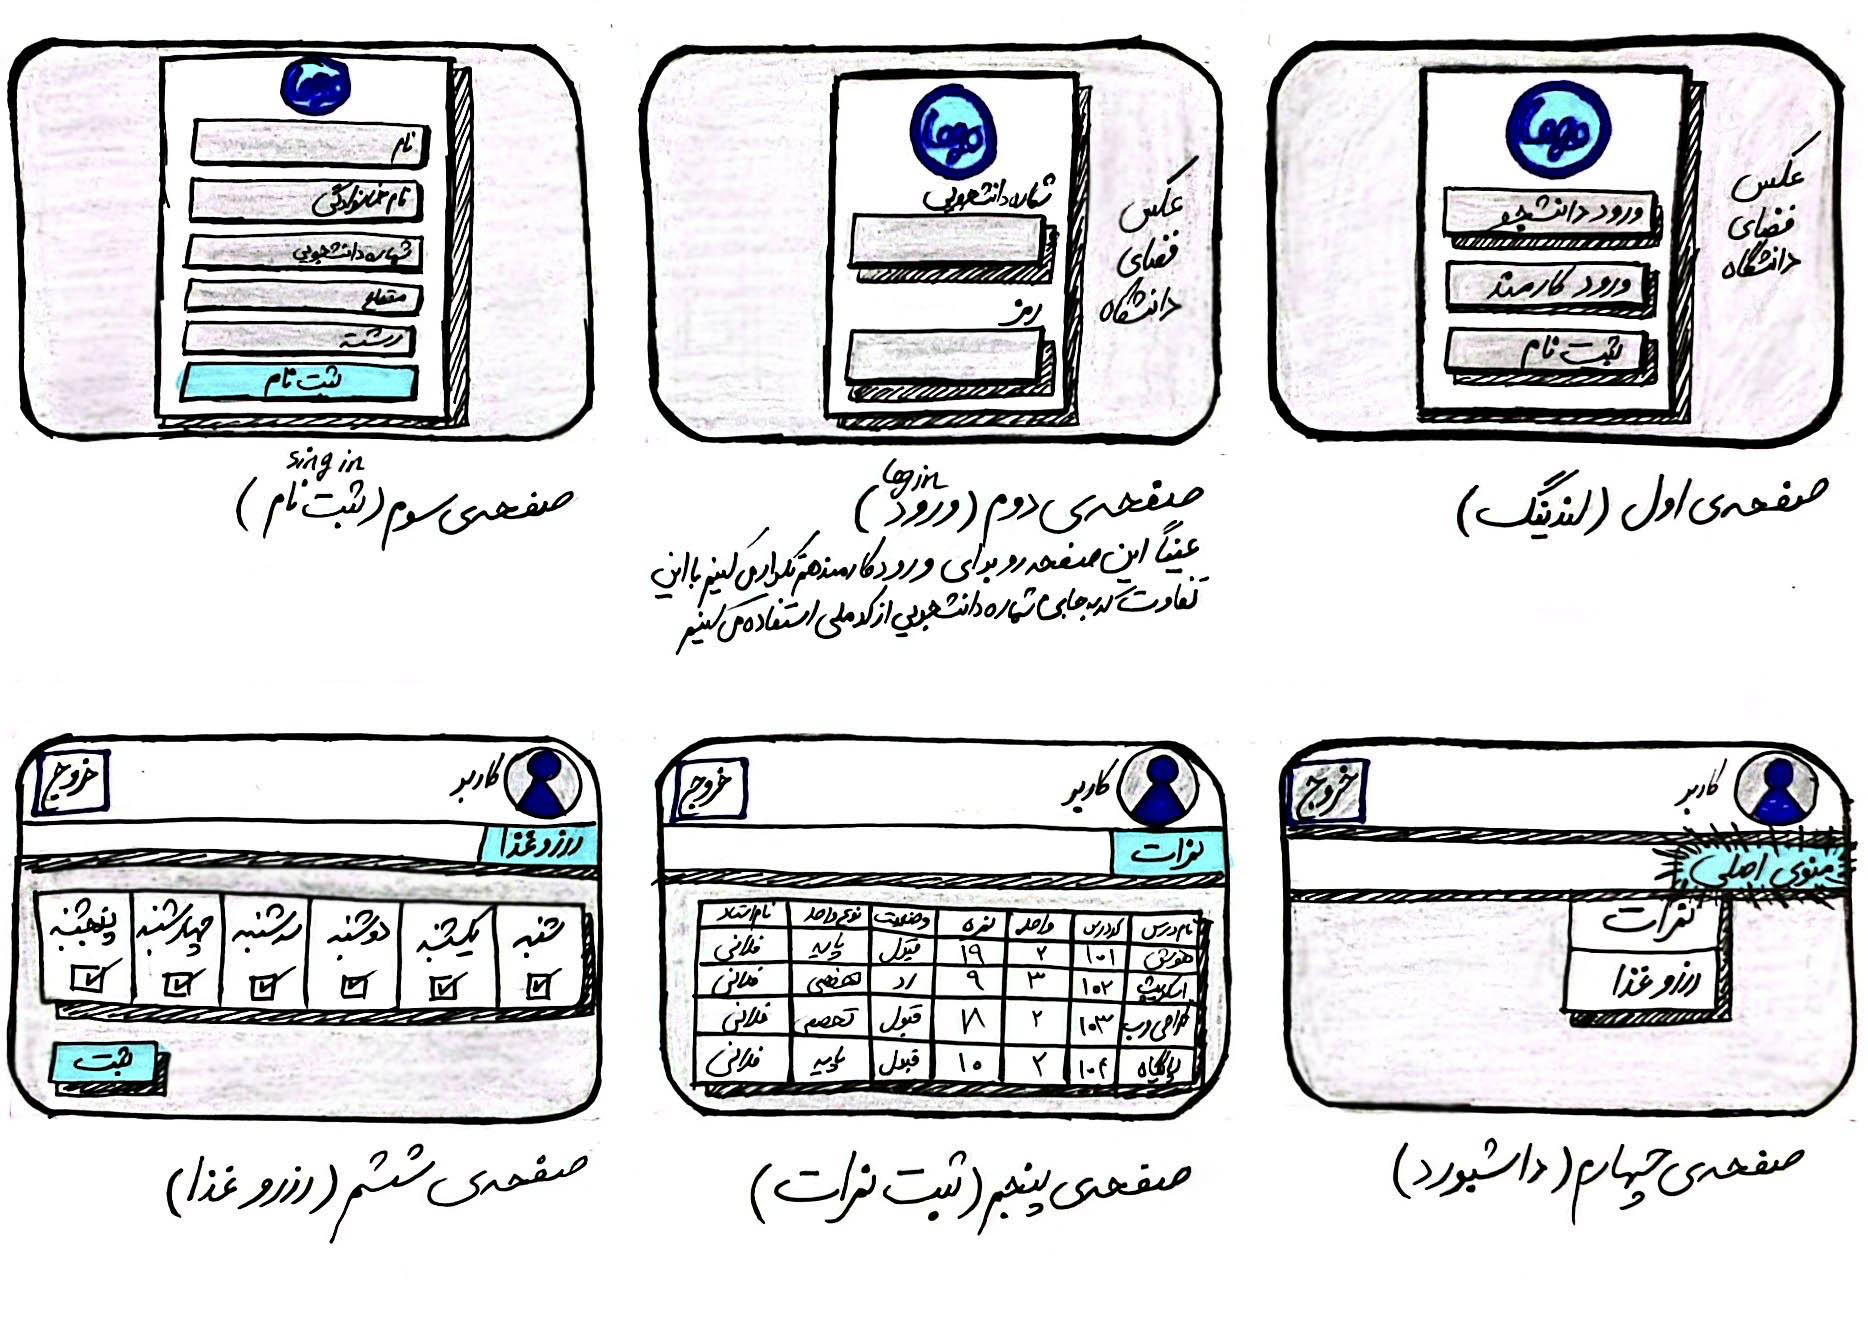 Logo
ورود دانشجو
ورود کارمند
ثبت نام
عکس
فضای
دانشگاه
صفحه‌ی اول (لندینگ)
Logo
شماره دانشجویی
رمز
عکس
فضای
دانشگاه
login
صفحه‌ی دوم (ورود)
عیناً این صفحه رو برای ورود کارمند هم تکرار می‌کنیم با این
تفاوت که به جای شماره دانشجویی از کد ملی استفاده می‌کنیم
Logo
نام
نام خانوادگی
شماره دانشجویی
مقطع
رشته
ثبت نام
sing in
صفحه‌ی سوم (ثبت نام)
کاربر
خروج
منوی اصلی
نمرات
رزرو غذا
صفحه‌ی چهارم (داشبورد)
کاربر
خروج
نمرات
نام درس کد درس واحد نمره وضعیت نوع واحد نام استاد
هوش ۱۰۱ ۲ ۱۹ قبول پایه فلانی
اسکریپت ۱۰۲ ۳ ۹ رد تخصصی فلانی
طراحی وب ۱۰۳ ۲ ۱۸ قبول تخصصی فلانی
پایگاه ۱۰۴ ۲ ۱۰ قبول پایه فلانی
صفحه‌ی پنجم (ثبت نمرات)
کاربر
خروج
رزرو غذا
شنبه یکشنبه دوشنبه سه شنبه چهارشنبه پنجشنبه
ثبت
صفحه‌ی ششم (رزرو غذا)